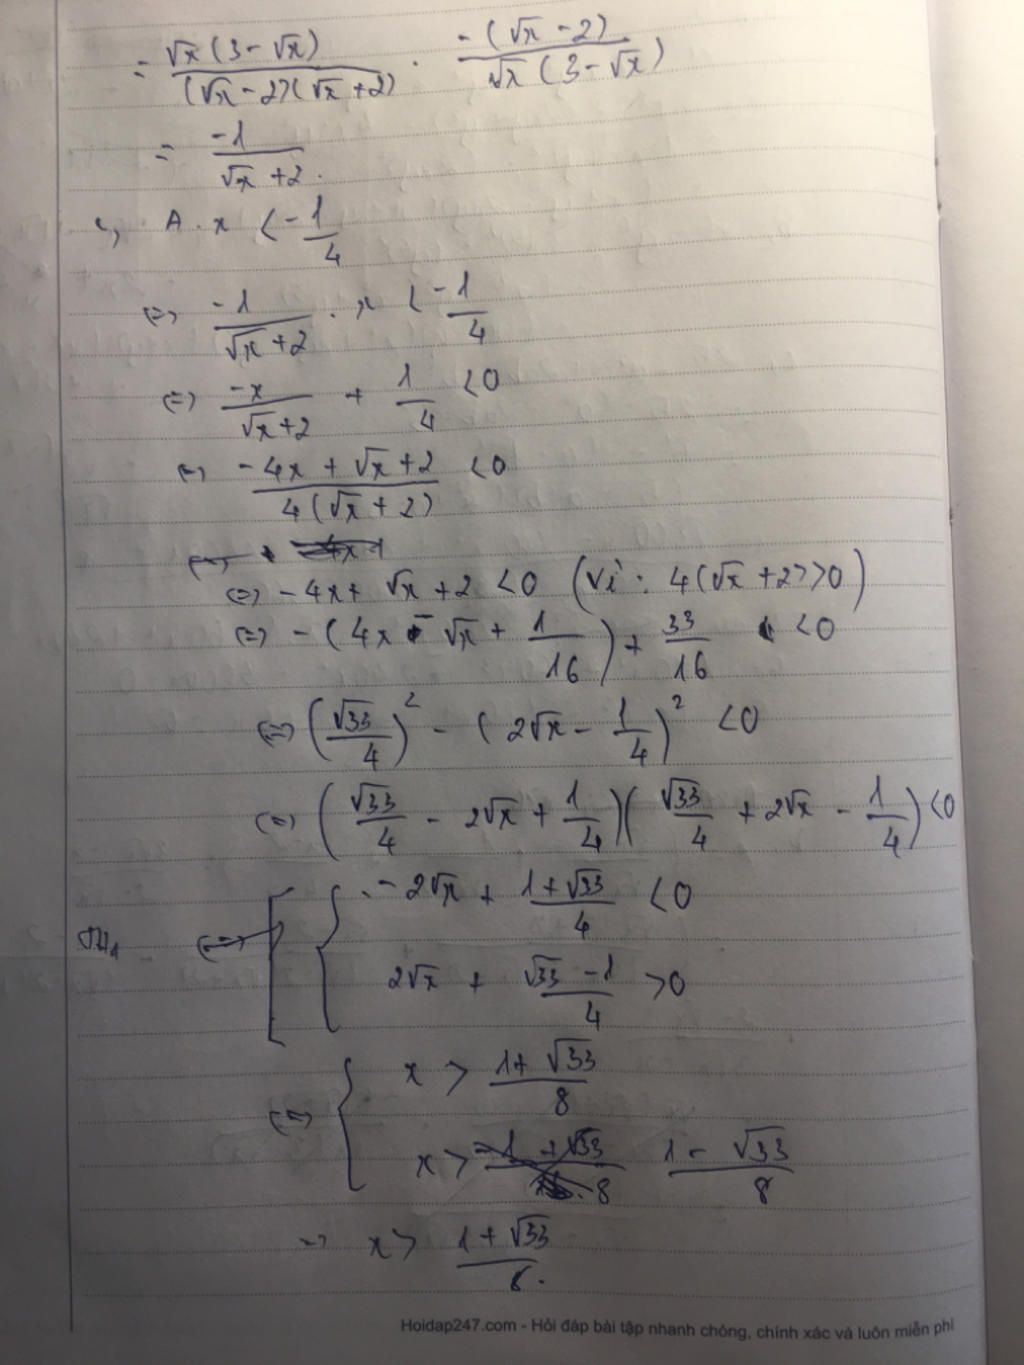 = √x (3 - √x) / (√x - 2)(√x + 2) . -(√x - 2) / √x (3 - √x)
= -1 / √x + 2.
c, A . x < -1/4
<=> -1 / √x + 2 . x < -1/4
<=> -x / √x + 2 + 1/4 < 0
<=> -4x + √x + 2 / 4(√x + 2) < 0
<=> -4x + √x + 2 < 0 (Vì : 4(√x + 2) > 0)
<=> -(4x - √x + 1/16) + 33/16 < 0
<=> (√33/4)² - (2√x - 1/4)² < 0
<=> (√33/4 - 2√x + 1/4)(√33/4 + 2√x - 1/4) < 0
TH1 <=> [ { -2√x + 1+√33 / 4 < 0
2√x + √33 - 1 / 4 > 0
<=> { x > 1+√33 / 8
x > 1 - √33 / 8
=> x > 1+√33 / 8.
Hoidap247.com - Hỏi đáp bài tập nhanh chóng, chính xác và luôn miễn phí